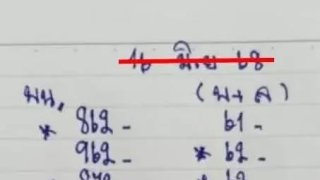 16 มิ.ย 68
บน. (บ+ล)
* 862 - 61 -
962 - * 62 -